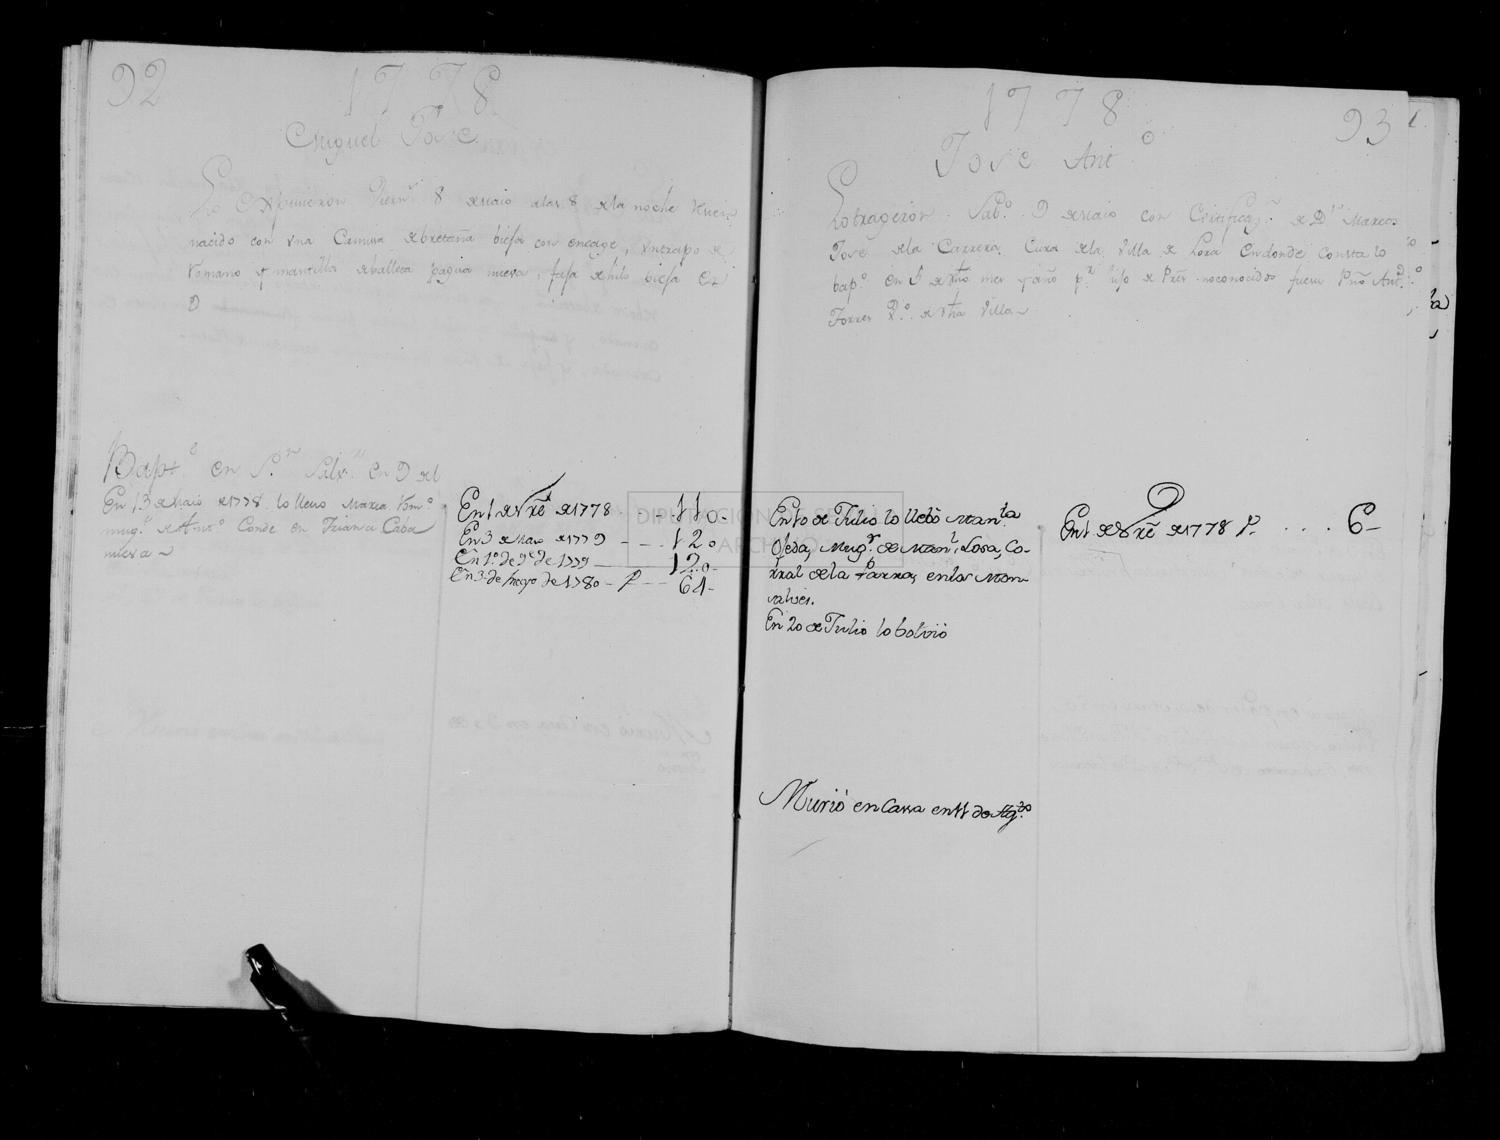 92
1778
Miguel Jose
Lo Expusieron Viern.s 8 de Maio a las 8 de la noche recien
nacido con vna Camisa de bretaña biefa con encage, vn trapo de
Romano y mantilla de balleta pagiza nueva, fafa de hilo biefa En
D
Bap.o en S.r Salv.r en 9 del
En 13 de Maio de 1778 lo llevo Maria Rom.o
mug.r de Ant.o Conde en Triana Caba
nueva
En 1 de Nre de 1778 - - 110-
En 3 de Maio de 1779 - - 120
En 1.o de 9.e de 1779 - 120-
En 3 de Mayo de 1780 - P - 61-
1778
93
Jose Ant.o
Lo trageron Sab.o 9 de Maio con Certificaz.n de D.n Marcos
Jose de la Carrera Cura de la Villa de Lora En donde Consta lo
bap.o en 5 de dho mes y año p.r hijo de Pres no conocidos fueron Pno Ant.o
Torres V.o de dha Villa
En 10 de Julio lo llebò Man.la
Ojeda, Mug.r de Man.l Losa, Co-
rral de la Parra, en los Mon-
En 20 de Julio lo bolviò
Muriò en Cassa en 11 de Ag.to
En 1 de Nre de 1778 P. . . . . 6-
DIPUTACIÓN DE SEVILLA
ARCHIVO